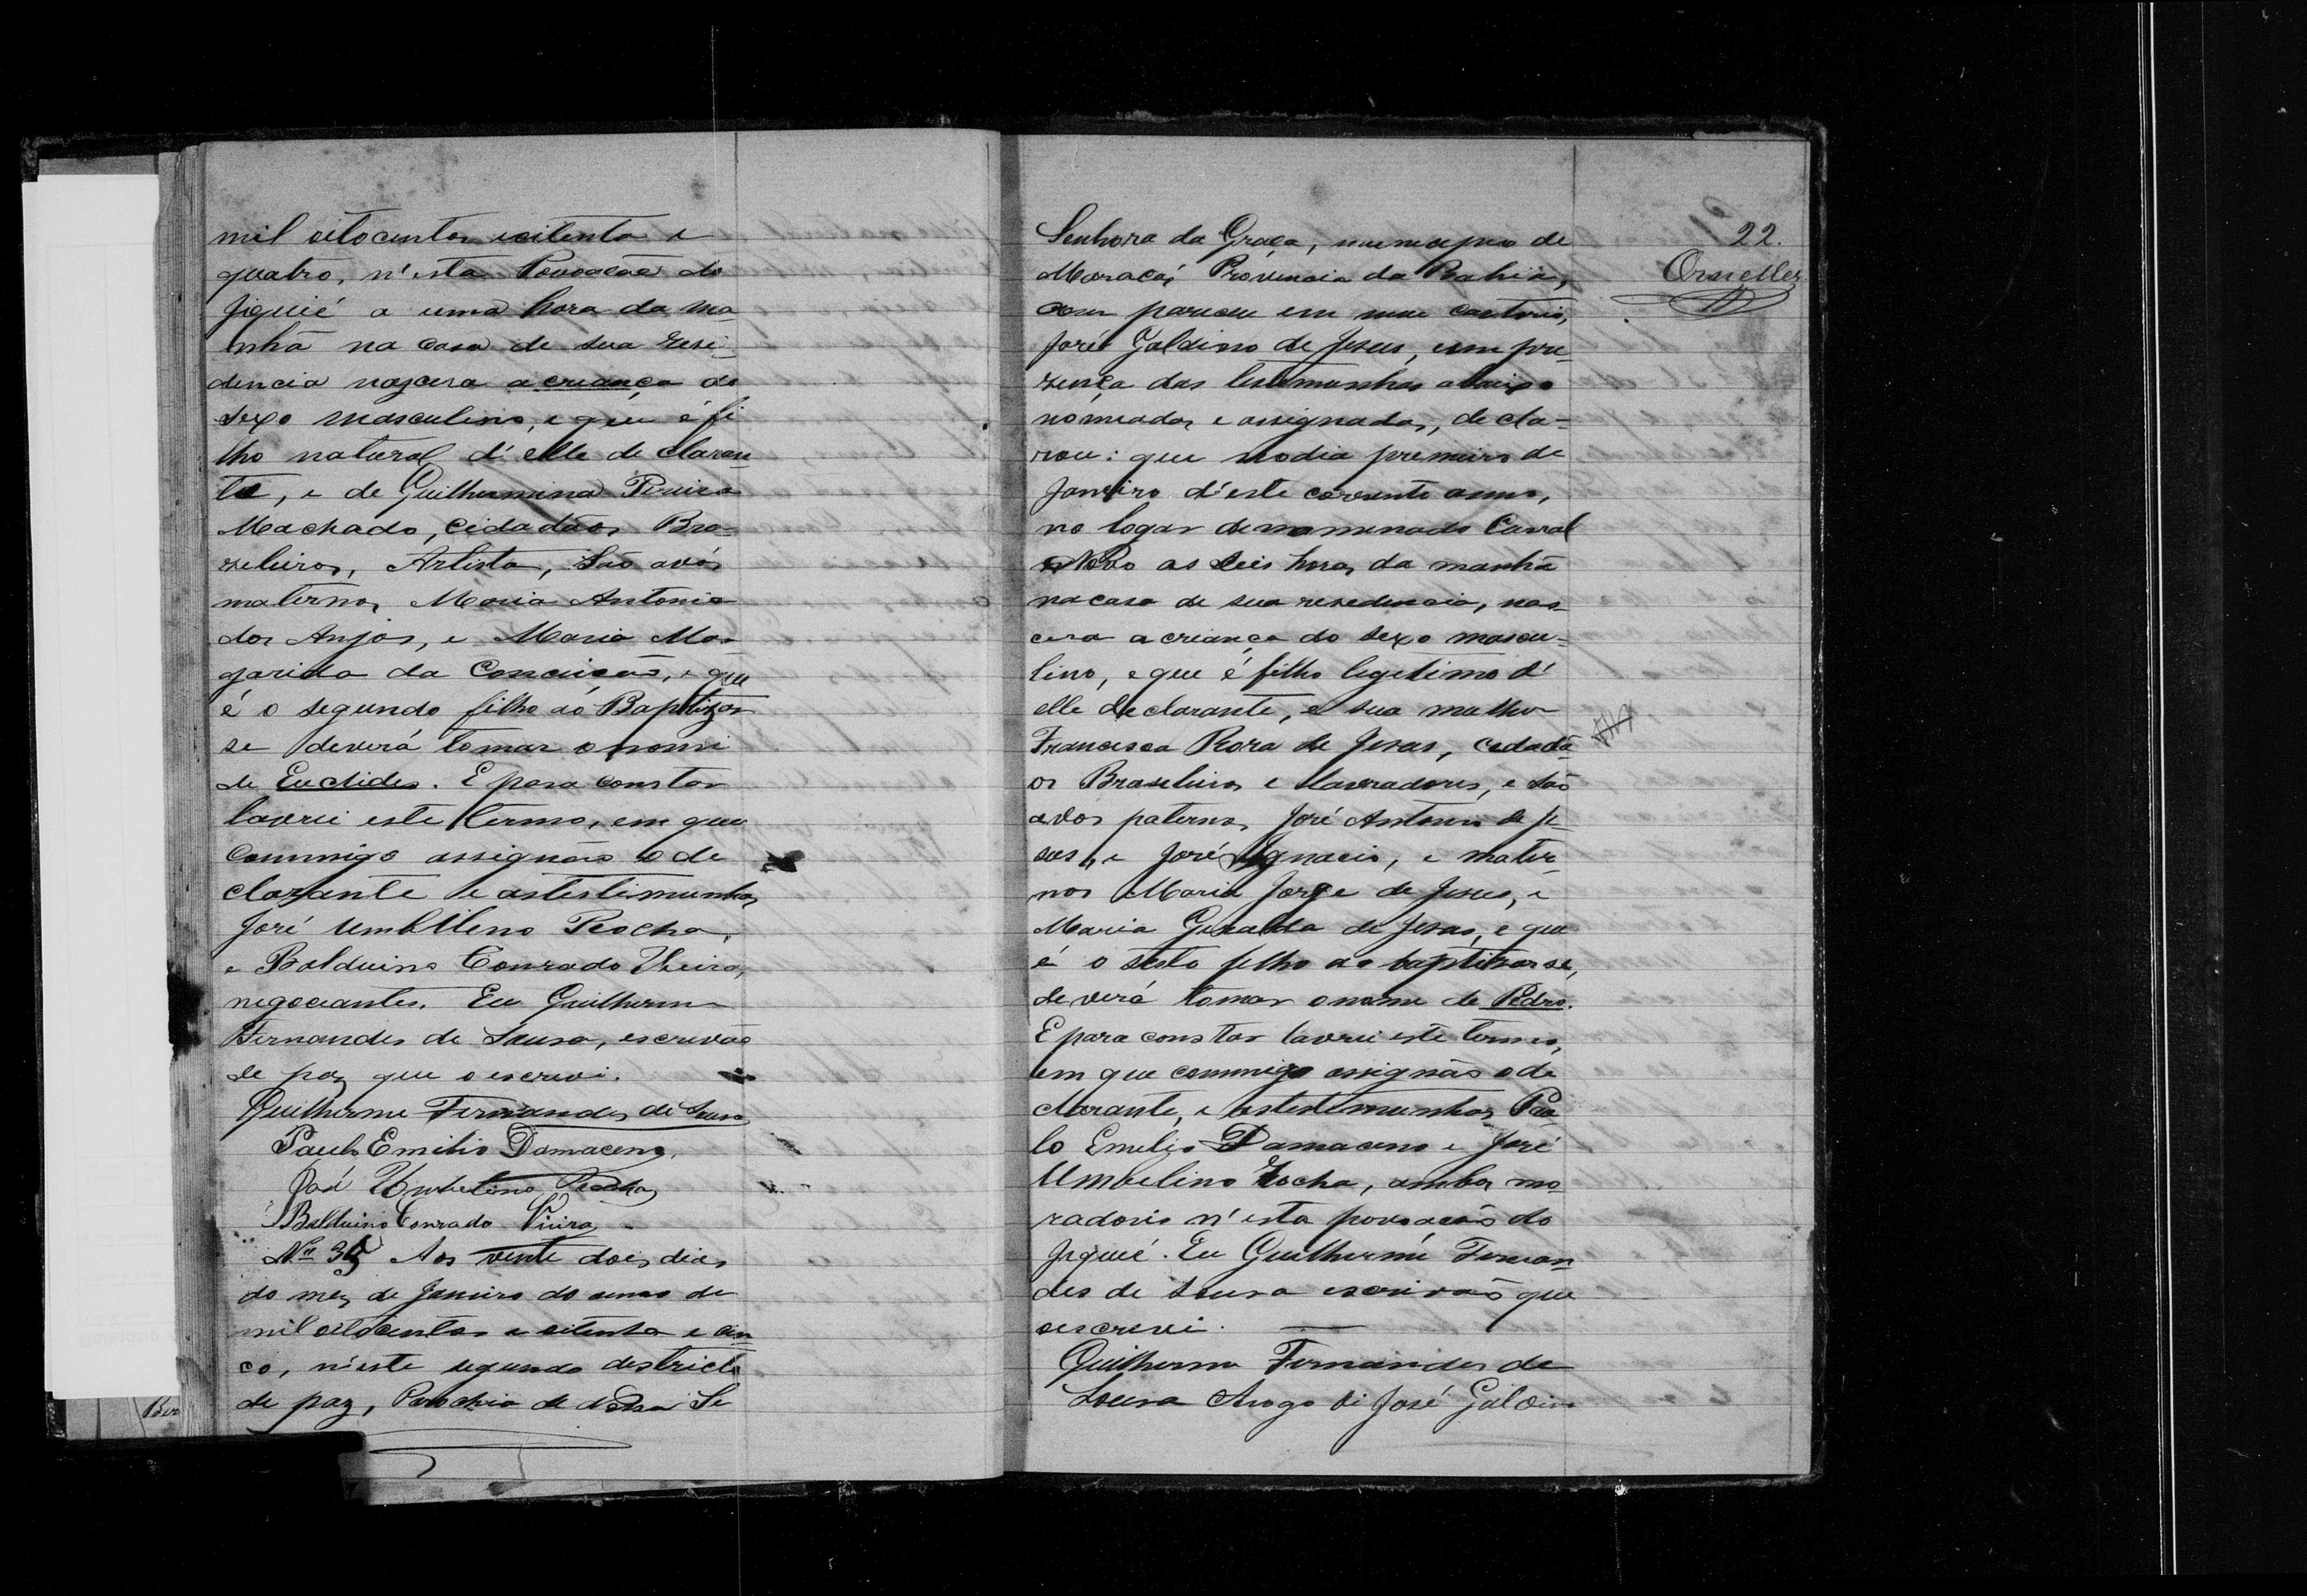 mil oitocentos e oitenta e
quatro, n'esta Povoação do
Jiquié a uma hora da ma
nhã na casa de sua resi-
dencia nascera a creança do
sexo masculino, e que é fi
lho natural d'elle declaran
te, e de Guilhermina Pereira
Machado, cidadãos Bra-
zeleiros, Artista, São avós
maternos Maria Antonia
dos Anjos, e Maria Mar-
garida da Conceição, e que
é o segundo filho ao Baptizar
se deverá tomar o nome
de Euclides. E para constar
lavrei este termo, em que
commigo assignão o de
clarante e as testimunhas
José Umbilino Rocha,
e Balduino Conrado Vieira,
negociantes. Eu Guilherme
Fernandes de Sousa, escrivão
de paz que o escrevi.
Guilherme Fernandes de Sousa
Paulo Emilio Damaceno.
José Umbelino Rocha
Balduino Conrado Vieira
Nº 35 Aos vente dois dias
do mez de Janeiro do anno de
mil oitocentos e oitenta e cin
co, n'este segundo destricto
de paz, Parochia de Nossa Se
22.
Senhora da Graça, municipio de
Maracás Provincia da Bahia,
com pareceu em meu cartorio,
José Galdino de Jesus, em pre-
zença das testemunhas abaixo
nomeadas e assignadas, decla-
rou: que no dia premeiro de
Janeiro d'este corrente anno,
no logar denominado Curral
Novo as seis horas da manhã
na casa de sua resedencia, nas
cera a criança do sexo mascu-
lino, e que é filho legetimo d'
elle declarante, e sua mulher
Francisca Roza de Jesus, cedadã
os Braseleiros e lavradores, e são
avós paternos José Antonio de Je-
sus, e José Ignacio, e mater
nos Maria Jorge de Jesus, e
Maria Geralda de Jesus, e que
é o sesto filho ao baptisar se,
deverá tomar o nome de Pedro.
E para constar lavrei este termo,
em que commigo assignão o de
clarante, e as testemunhas Pau
lo Emilio Damaceno e José
Umbelino Rocha, ambos mo-
radores n'esta povoação do
Jiquié. Eu Guilherme Fernan
des de Sousa escrivão que
o escrevi.
Guilherme Fernandes de
Sousa Arogo di José Galdino